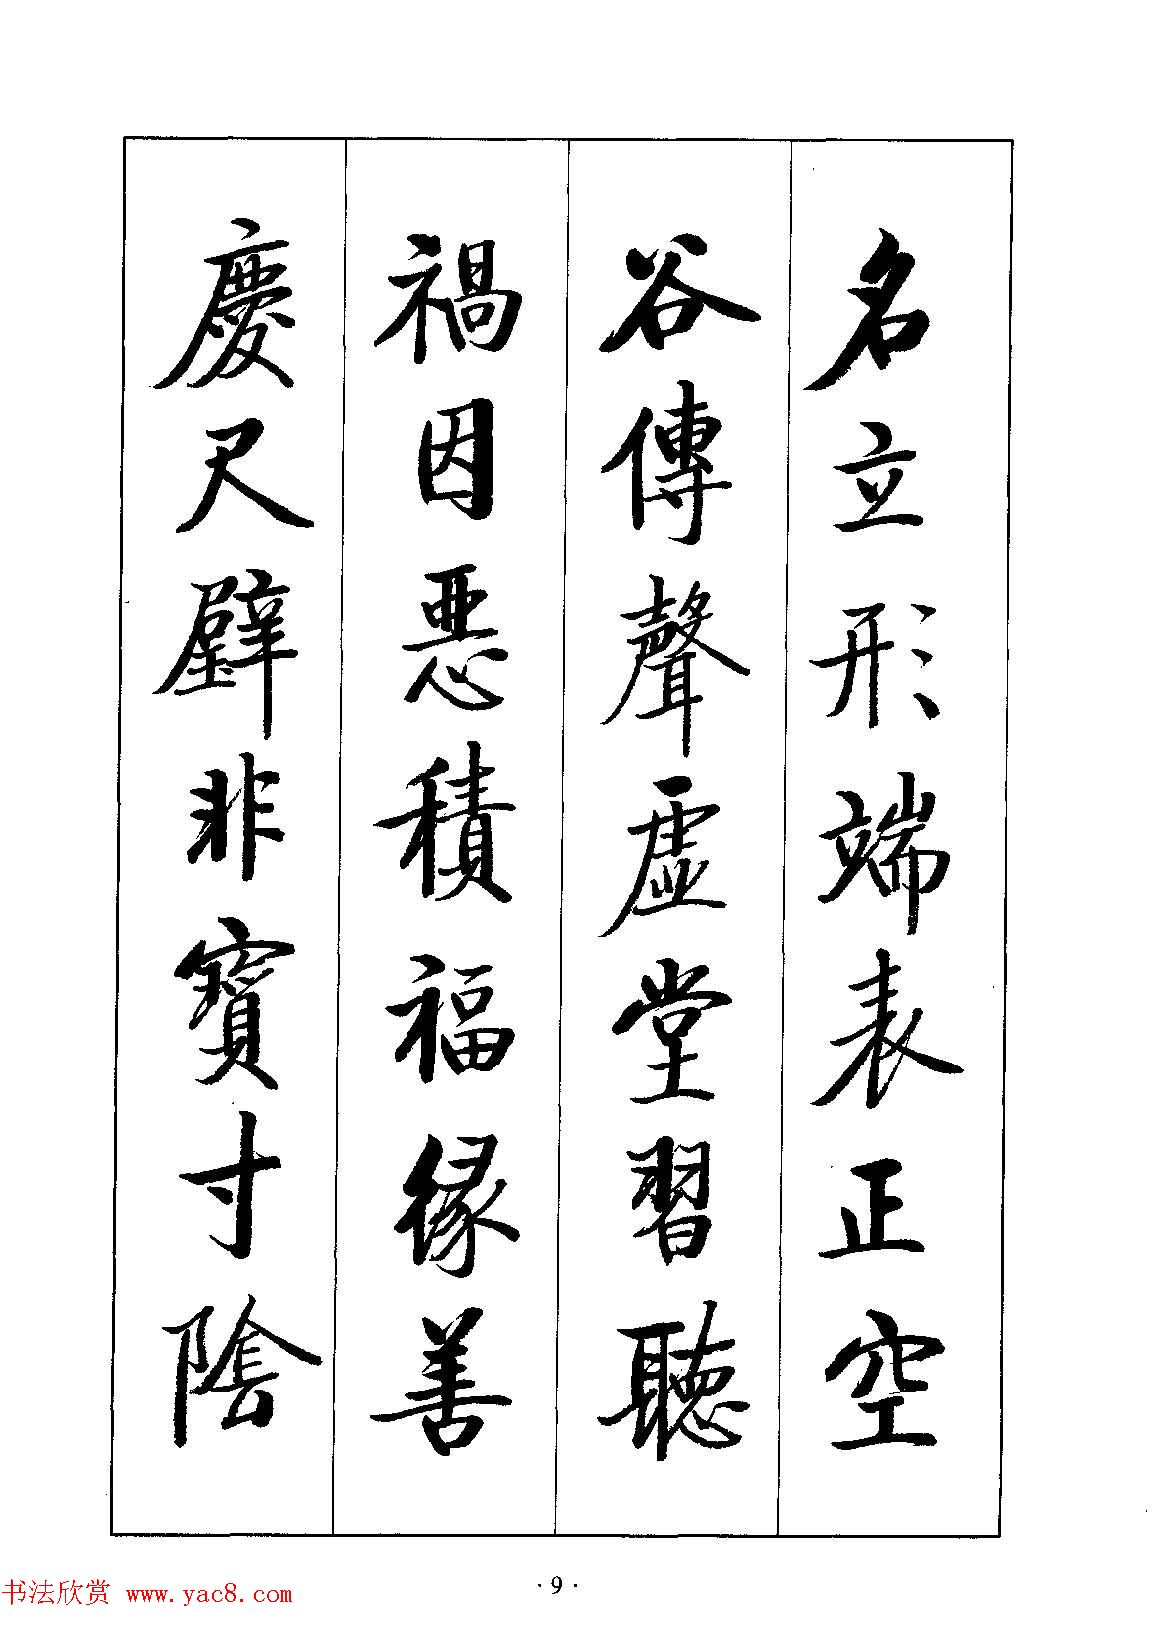 名立形端表正空
谷傳聲虛堂習聽
禍因惡積福緣善
慶尺璧非寶寸陰
·9·
书法欣赏 www.yac8.com